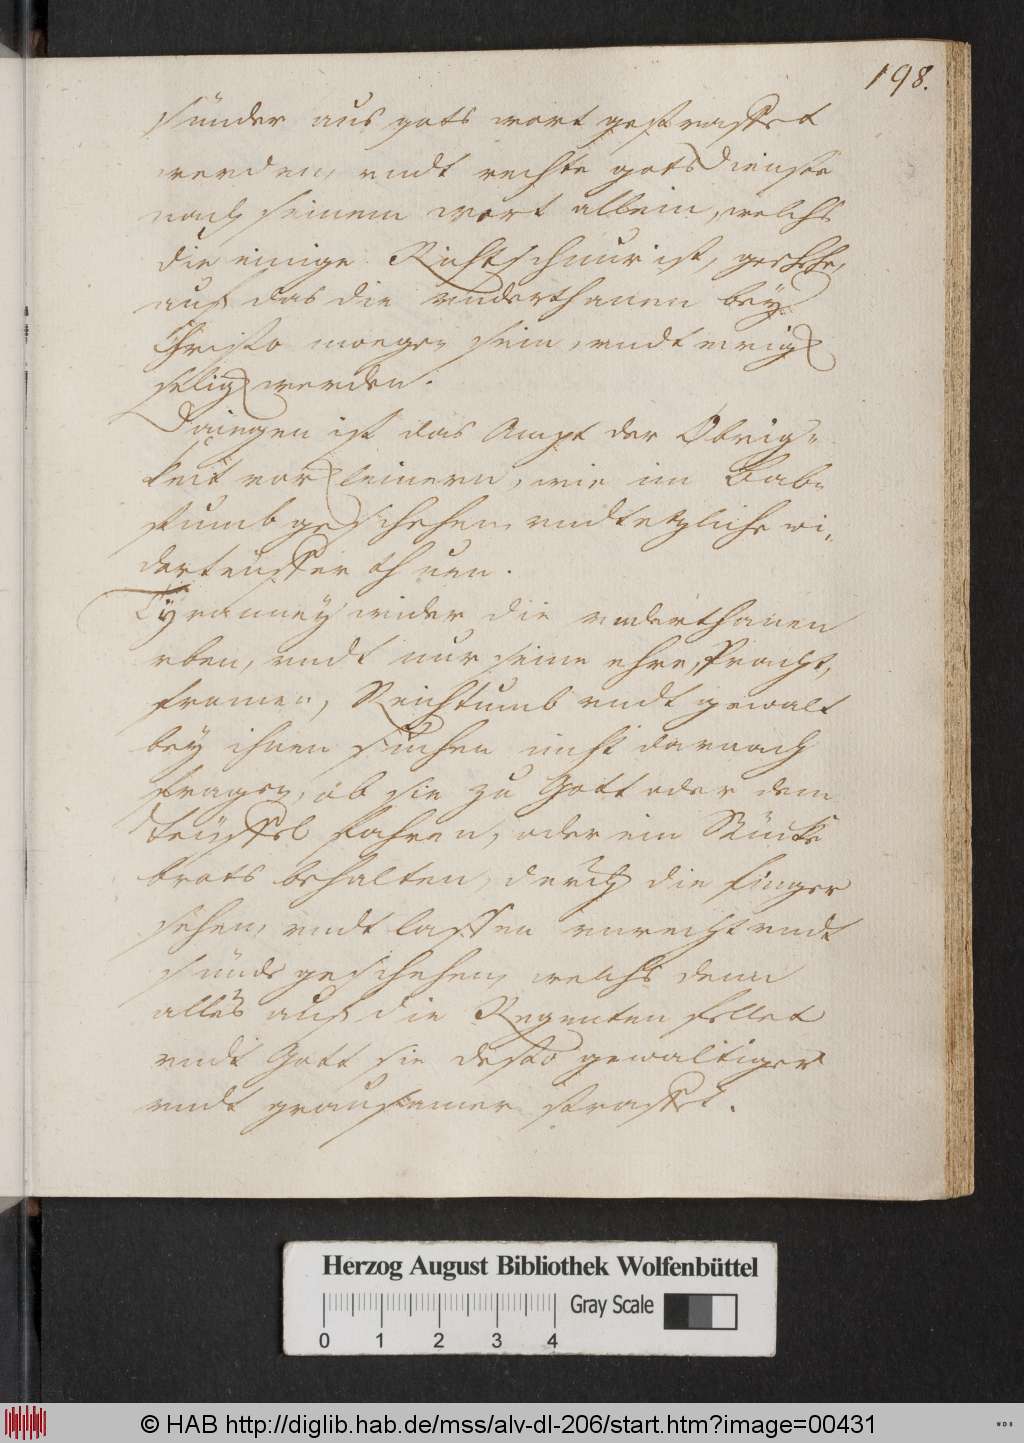 198.
sünder aus gots wort gestraffet
werden, undt rechte gots dienste
nach seinem wort allein, welchs
die einige Richtschnur ist, geschehe,
auf das die underthanen bey
Christo moegen sein, undt ewig
selig werden.
Daiegen ist das Ampt der Obrig-
keit vorkleinern, wie im Bab-
stumb geschehen, undt etzliche wi-
derteuffer thuen.
Tyranney wider die underthanen
eben, undt nur seine ehre, Pracht,
fromen, Reichtumb undt gewalt
bey ihnen suchen nicht darnach
fragen, ob sie zu Gott oder dem
Teuffel fahren, oder ein Stücke
brots behalten, durch die finger
sehen, undt lassen unrecht undt
sünde geschehen, welchs denn
alles auf die Regenten fellet
undt Gott sie desto gewaltiger
undt grausamer straffet.
Herzog August Bibliothek Wolfenbüttel
0 1 2 3 4 Gray Scale
© HAB http://diglib.hab.de/mss/alv-dl-206/start.htm?image=00431